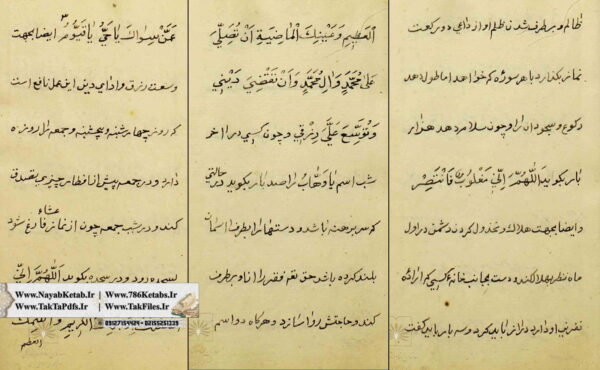 ظالم و برطرف شدن ظلم او از داعی دو رکعت
نماز بگذارد با هر سوره که خواهد اما طول دهد
رکوع و سجود آن را و چون سلام دهد هزار
بار بگوید اللَّهُمَّ اِنّی مَغْلُوبٌ فَانْتَصِرْ
و ایضا بجهت هلاک و مخذول کردن دشمن در اول
ماه نظر بهلال کند و دست بجانب خانه کسی که اراده
نفرین او دارد دراز باید کرد و سه بار باید گفت
اَلْعَظیمِ وَعَیْنِكَ الْمَاضِیَةِ اَنْ تُصَلِّیَ
عَلیٰ مُحَمَّدٍ وَالِ مُحَمَّدٍ وَاَنْ تَقْضِیَ دَیْنِی
وَتُوَسِّعَ عَلَیَّ رِزْقِی و چون کسی در آخر
شب اسم یا وَهّابُ را صد بار بگوید در حالتی
که سر برهنه باشد و دستها را بطرف آسمان
بلند کرده باشد حق تعالی فقر را از او برطرف
کند و حاجتش روا سازد و هرگاه دو اسم
عَمَّنْ سِوَاكَ یَا حَیُّ یَا قَیُّومُ ایضا بجهت
وسعت رزق و ادای دین این عمل نافع است
که روز چهارشنبه و پنجشنبه و جمعه را روزه
دارد و در جمعه پیش از افطار چیزی بتصدق
کند و در شب جمعه چون از نماز عشاء فارغ شود
بسجده رود و در سجده بگوید اَللَّهُمَّ اِنّی
الکَرِیمِ
العظیم
www.NayabKetab.Ir www.786Ketabs.Ir
www.TakTaPdfs.Ir www.TakFiles.Ir
09127154624 - 02155251225